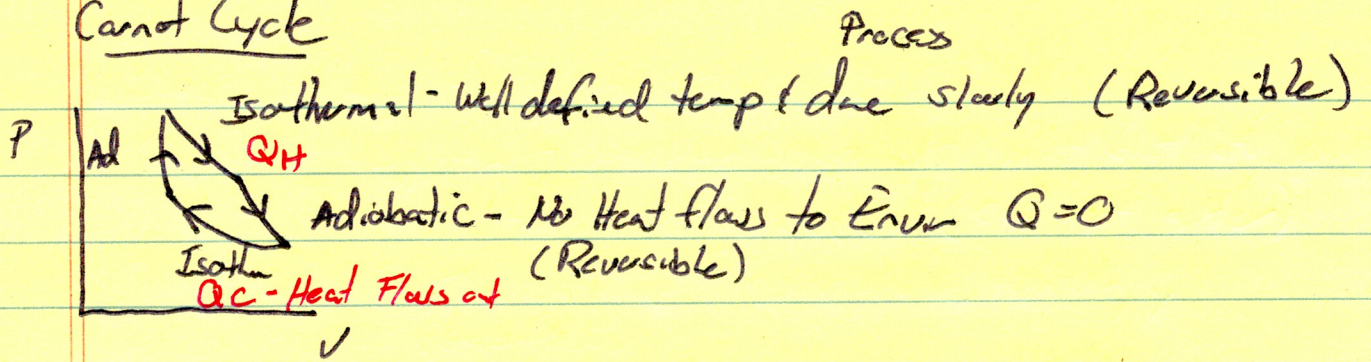 Carnot Cycle
Process
Isothermal - Well defined temp & done slowly (Reversible)
P
Ad
QH
Adiabatic - No Heat flows to Envr Q=0
(Reversible)
Isoth
QC - Heat Flows out
V